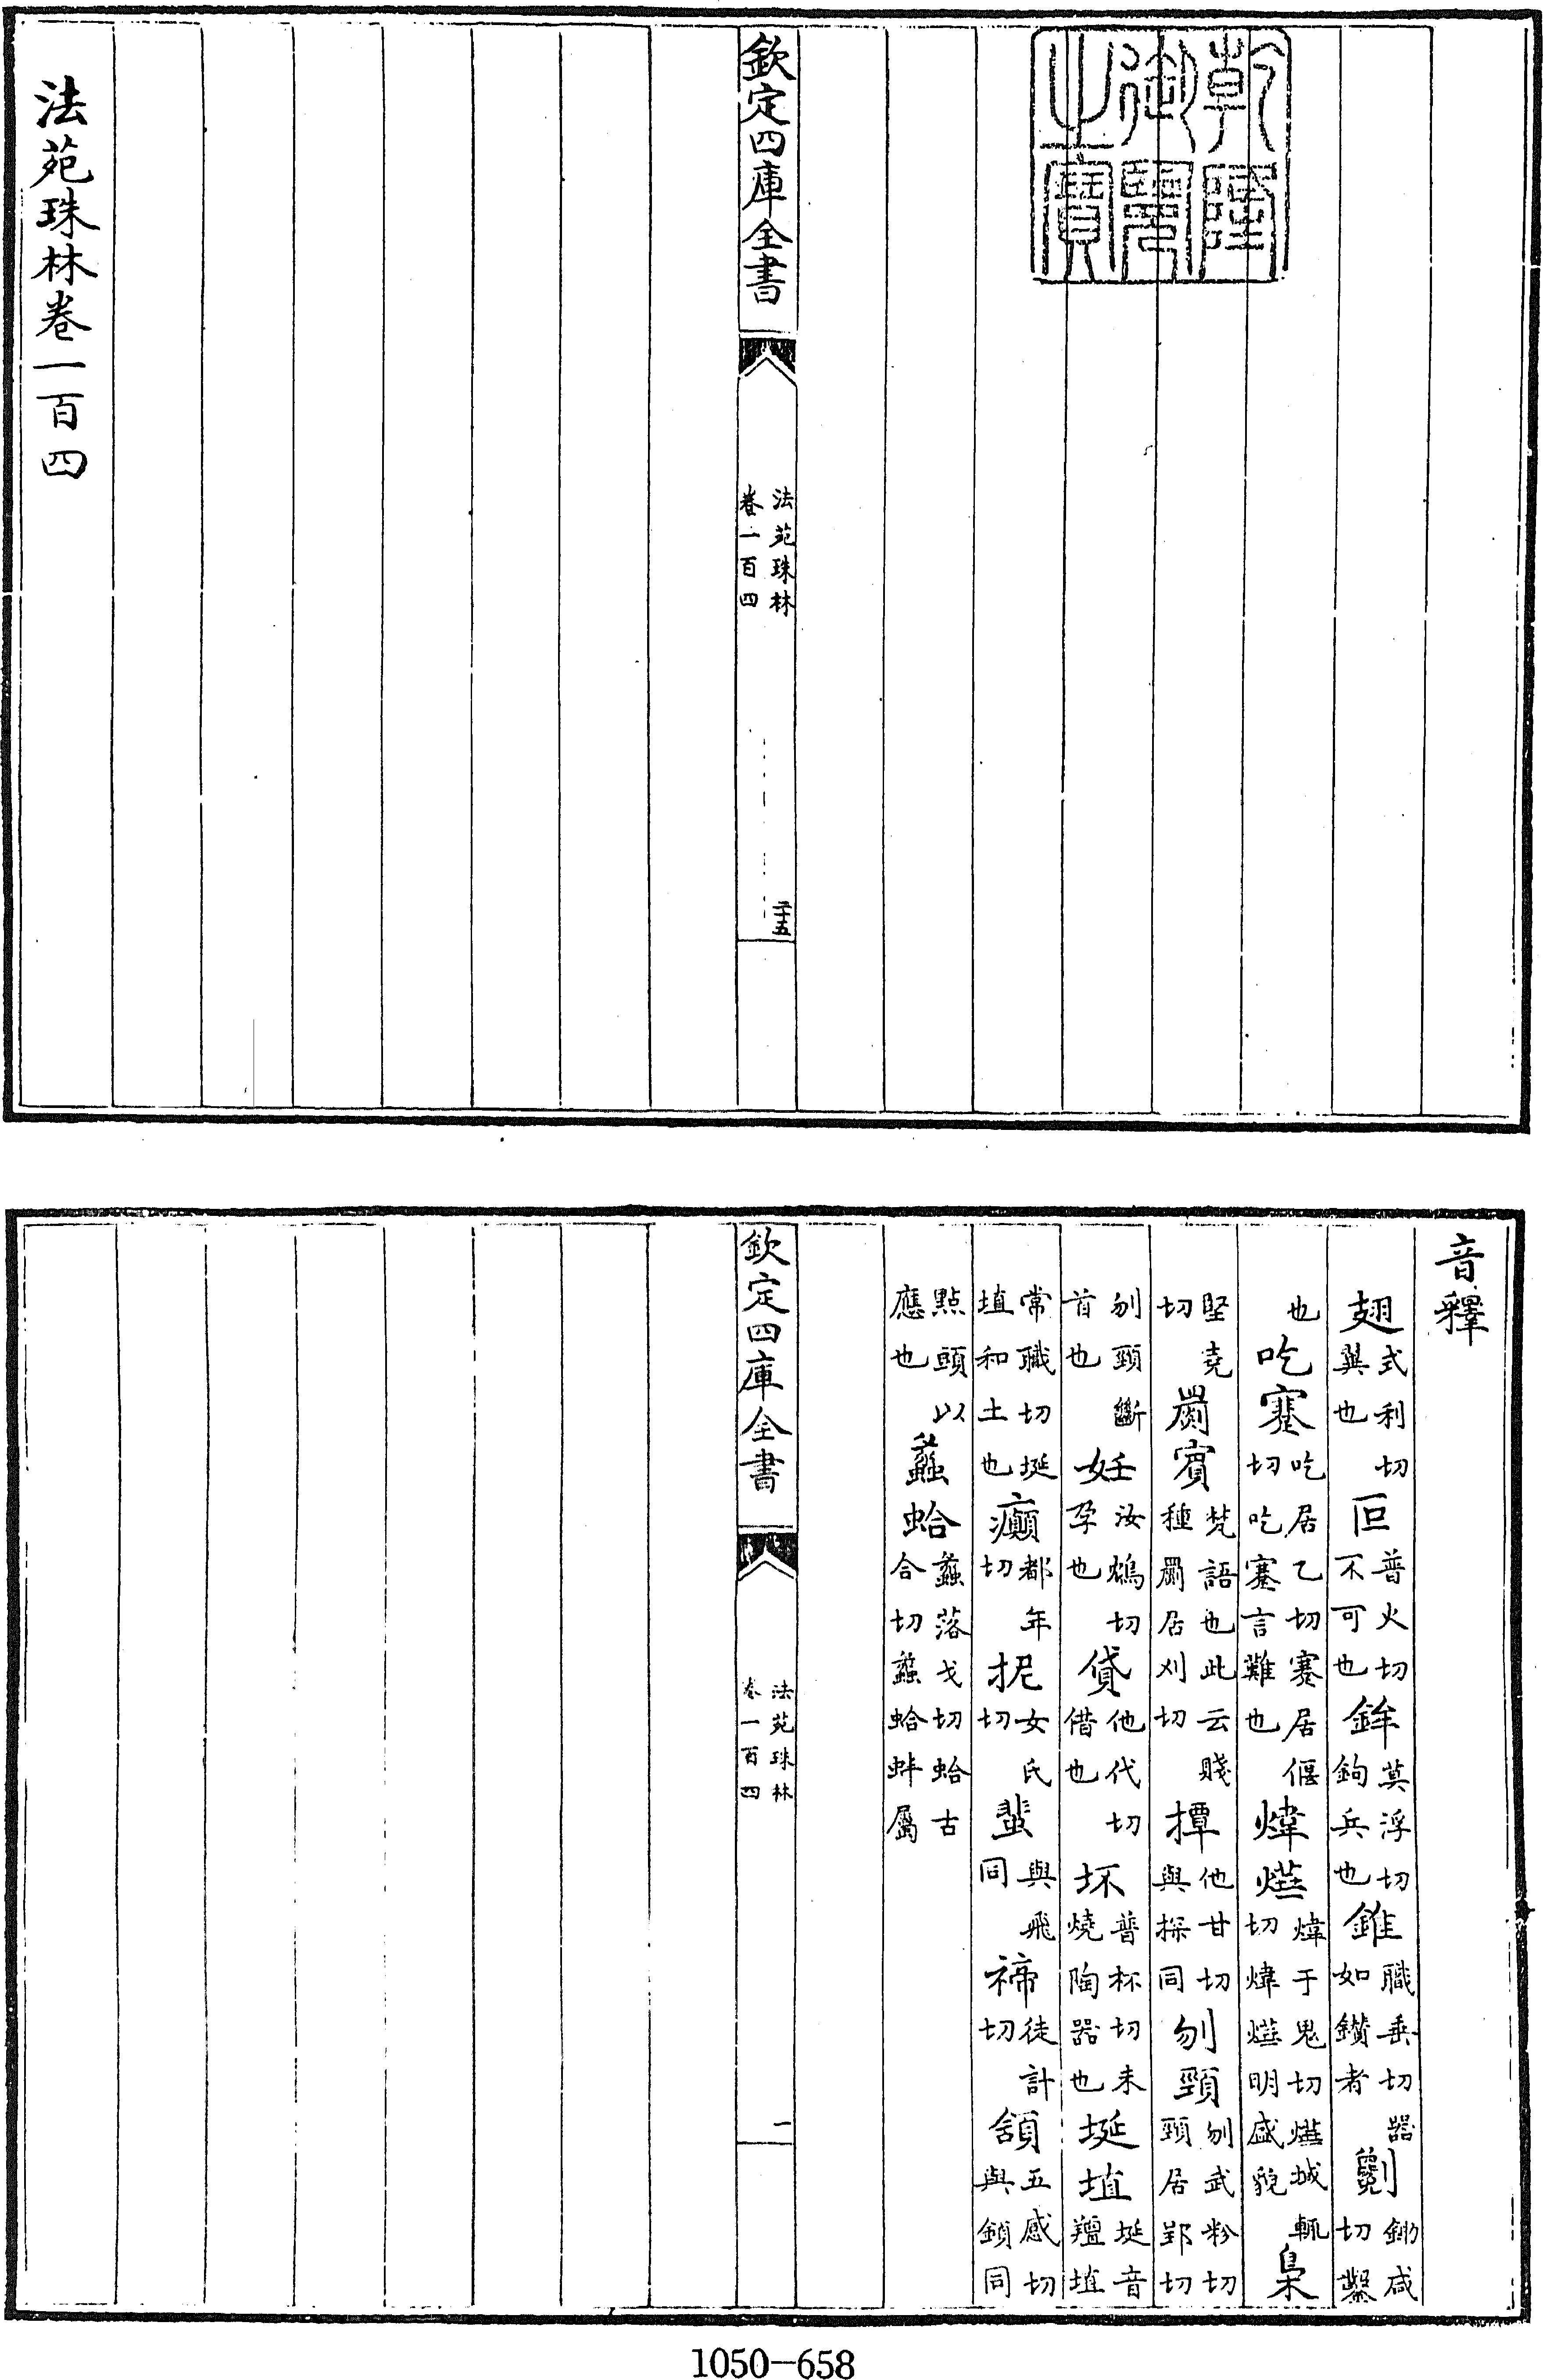 乾隆御覽之寶
欽定四庫全書
法苑珠林
卷一百四
二十五
法苑珠林卷一百四
音釋
翅式利切翼也叵普火切不可也鉾莫浮切鉤兵也錐職垂切器如鑽者劖鋤咸切鑿
也吃蹇吃居乙切蹇居偃切吃蹇言難也煒爗煒于鬼切爗域輒切煒爗明盛貌梟
堅堯切罽賓梵語也此云賤種罽居刈切撢他甘切與探同刎頸刎武粉切頸居郢切
刎頸斷首也妊汝鴆切孕也貸他代切借也坏普杯切未燒陶器也埏埴埏音羶埴
常職切埏埴和土也癲都年切抳女氏切蜚與飛同禘徒計切頷五感切與顉同
點頭以應也蠡蛤蠡落戈切蛤古合切蠡蛤蚌屬
欽定四庫全書
法苑珠林
卷一百四
一
1050-658